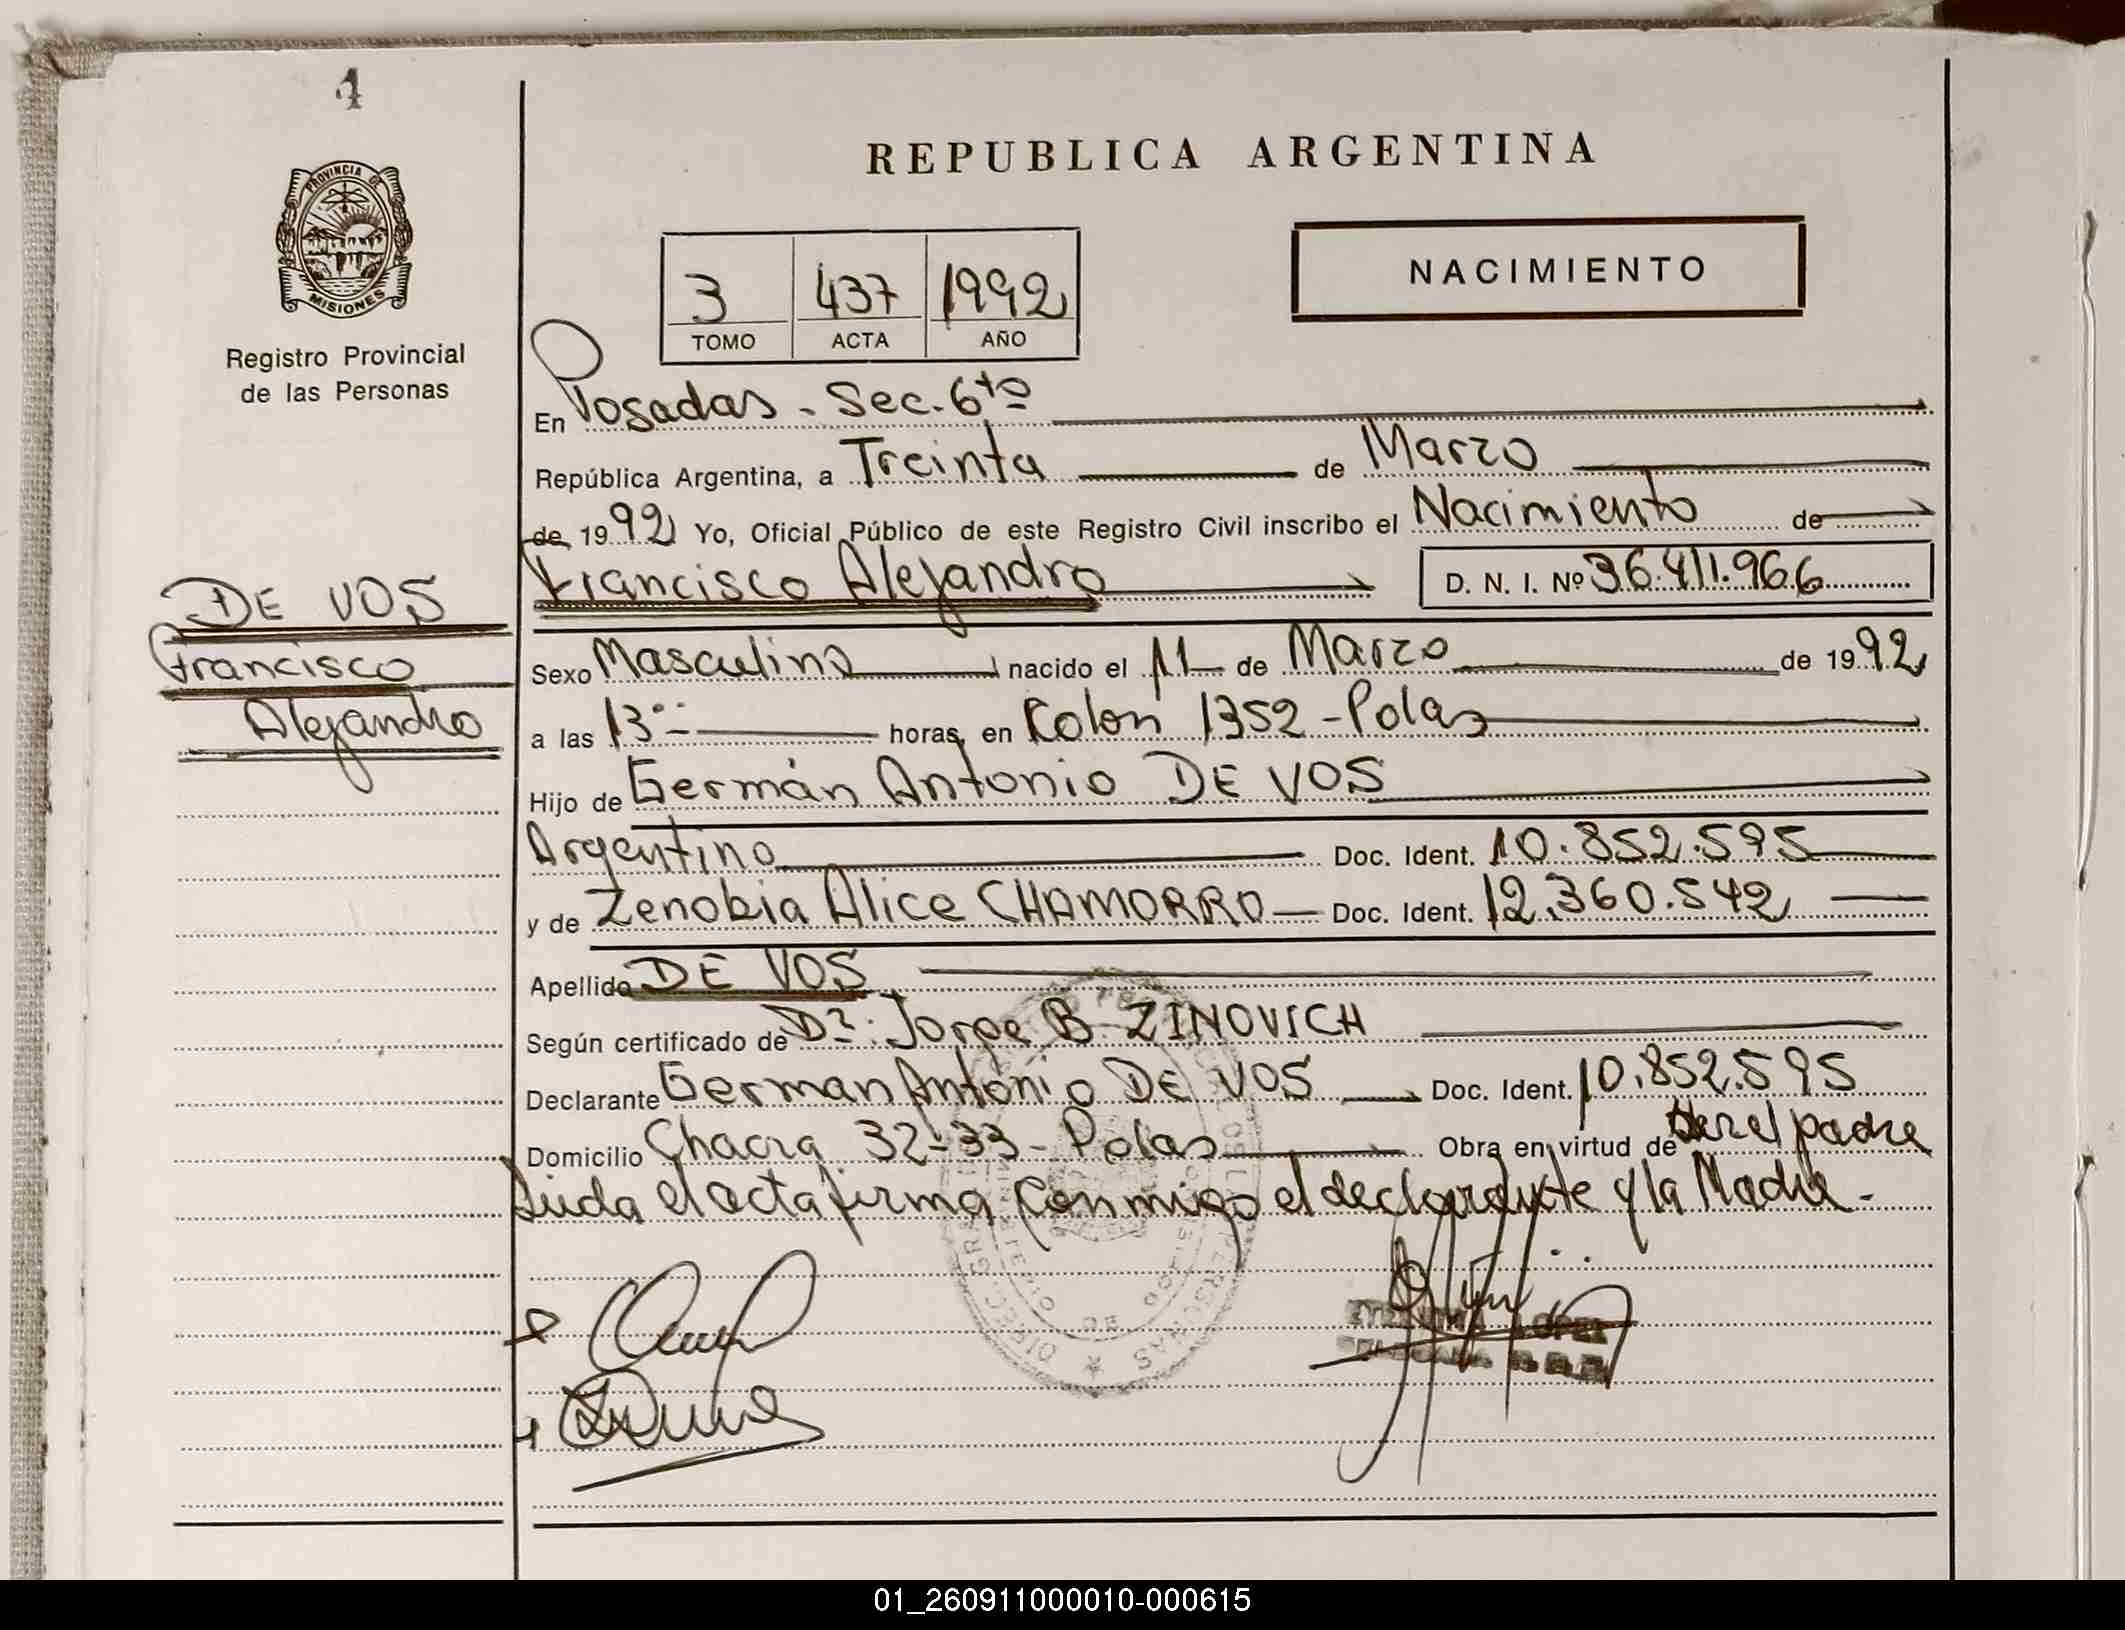 4
PROVINCIA DE
MISIONES
Registro Provincial
de las Personas
REPUBLICA ARGENTINA
3 437 1992
TOMO ACTA AÑO
NACIMIENTO
En Posadas - Sec. 6to
República Argentina, a Treinta de Marzo
de 1992 Yo, Oficial Público de este Registro Civil inscribo el Nacimiento de
Francisco Alejandro D. N. I. Nº 36.411.966
DE VOS
Francisco
Alejandro
Sexo Masculino nacido el 11 de Marzo de 1992
a las 13 horas, en Colon 1352 - Pdas
Hijo de Germán Antonio DE VOS
Argentino Doc. Ident. 10.852.595
y de Zenobia Alice CHAMORRO Doc. Ident. 12.360.542
Apellido DE VOS
Según certificado de Dr. Jorge B. ZINOVICH
Declarante German Antonio DE VOS Doc. Ident. 10.852.595
Domicilio Chacra 32-33 - Pdas Obra en virtud de ser el padre
Leida el acta firma conmigo el declarante y la Madre -
LOPEZ
01_260911000010-000615